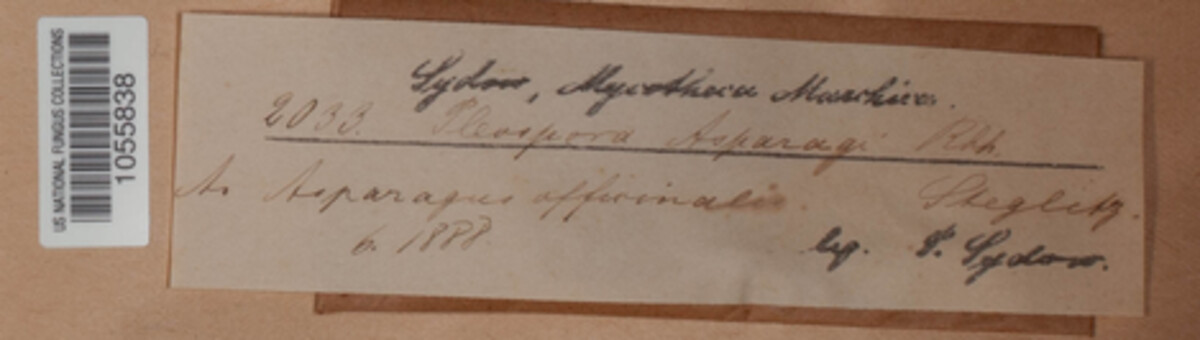 US NATIONAL FUNGUS COLLECTIONS
1055838
Sydow, Mycotheca Marchica.
2033. Pleospora Asparagi Rbh.
A. Asparagus officinalis. Steglitz.
6. 1888 leg. P. Sydow.